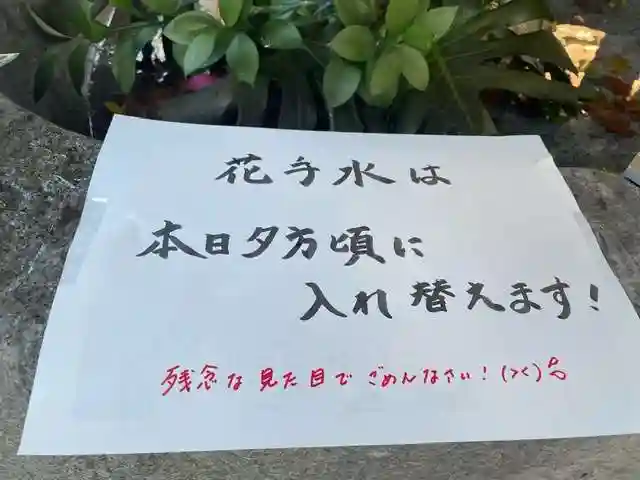 花手水は
本日夕方頃に
入れ替えます!
残念な見た目でごめんなさい!(><)